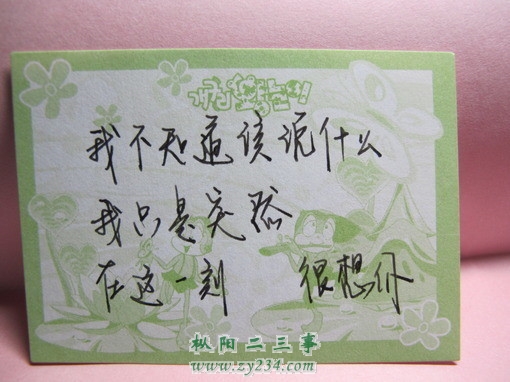 개구리
我不知道该说什么
我只是突然
在这一刻 很想你
枞阳二三事
www.zy234.com